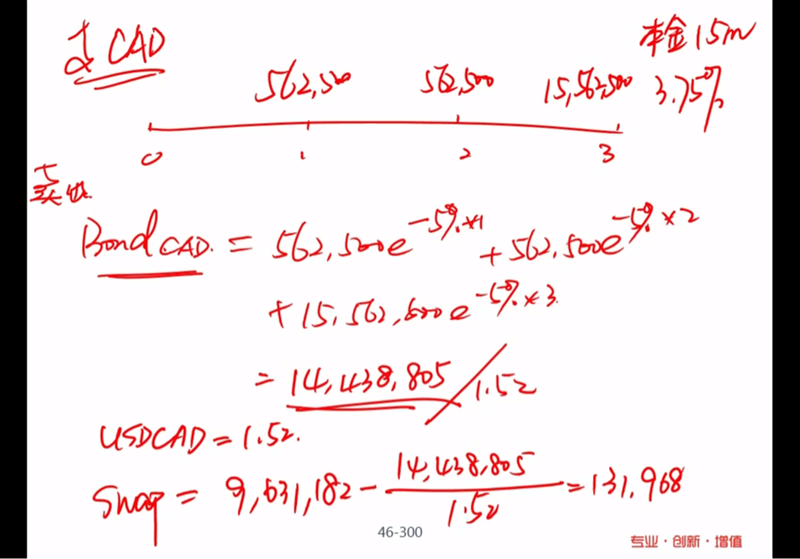 CAD 本金15m
562,500 562,500 15,562,500 3.75%
0 1 2 3
Bond CAD. = 562,500e^-5%×1 + 562,500e^-5%×2
+ 15,562,500e^-5%×3
= 14,438,805 / 1.52
USDCAD = 1.52.
Swap = 9,631,182 - 14,438,805/1.52 = 131,968
46-300
专业·创新·增值